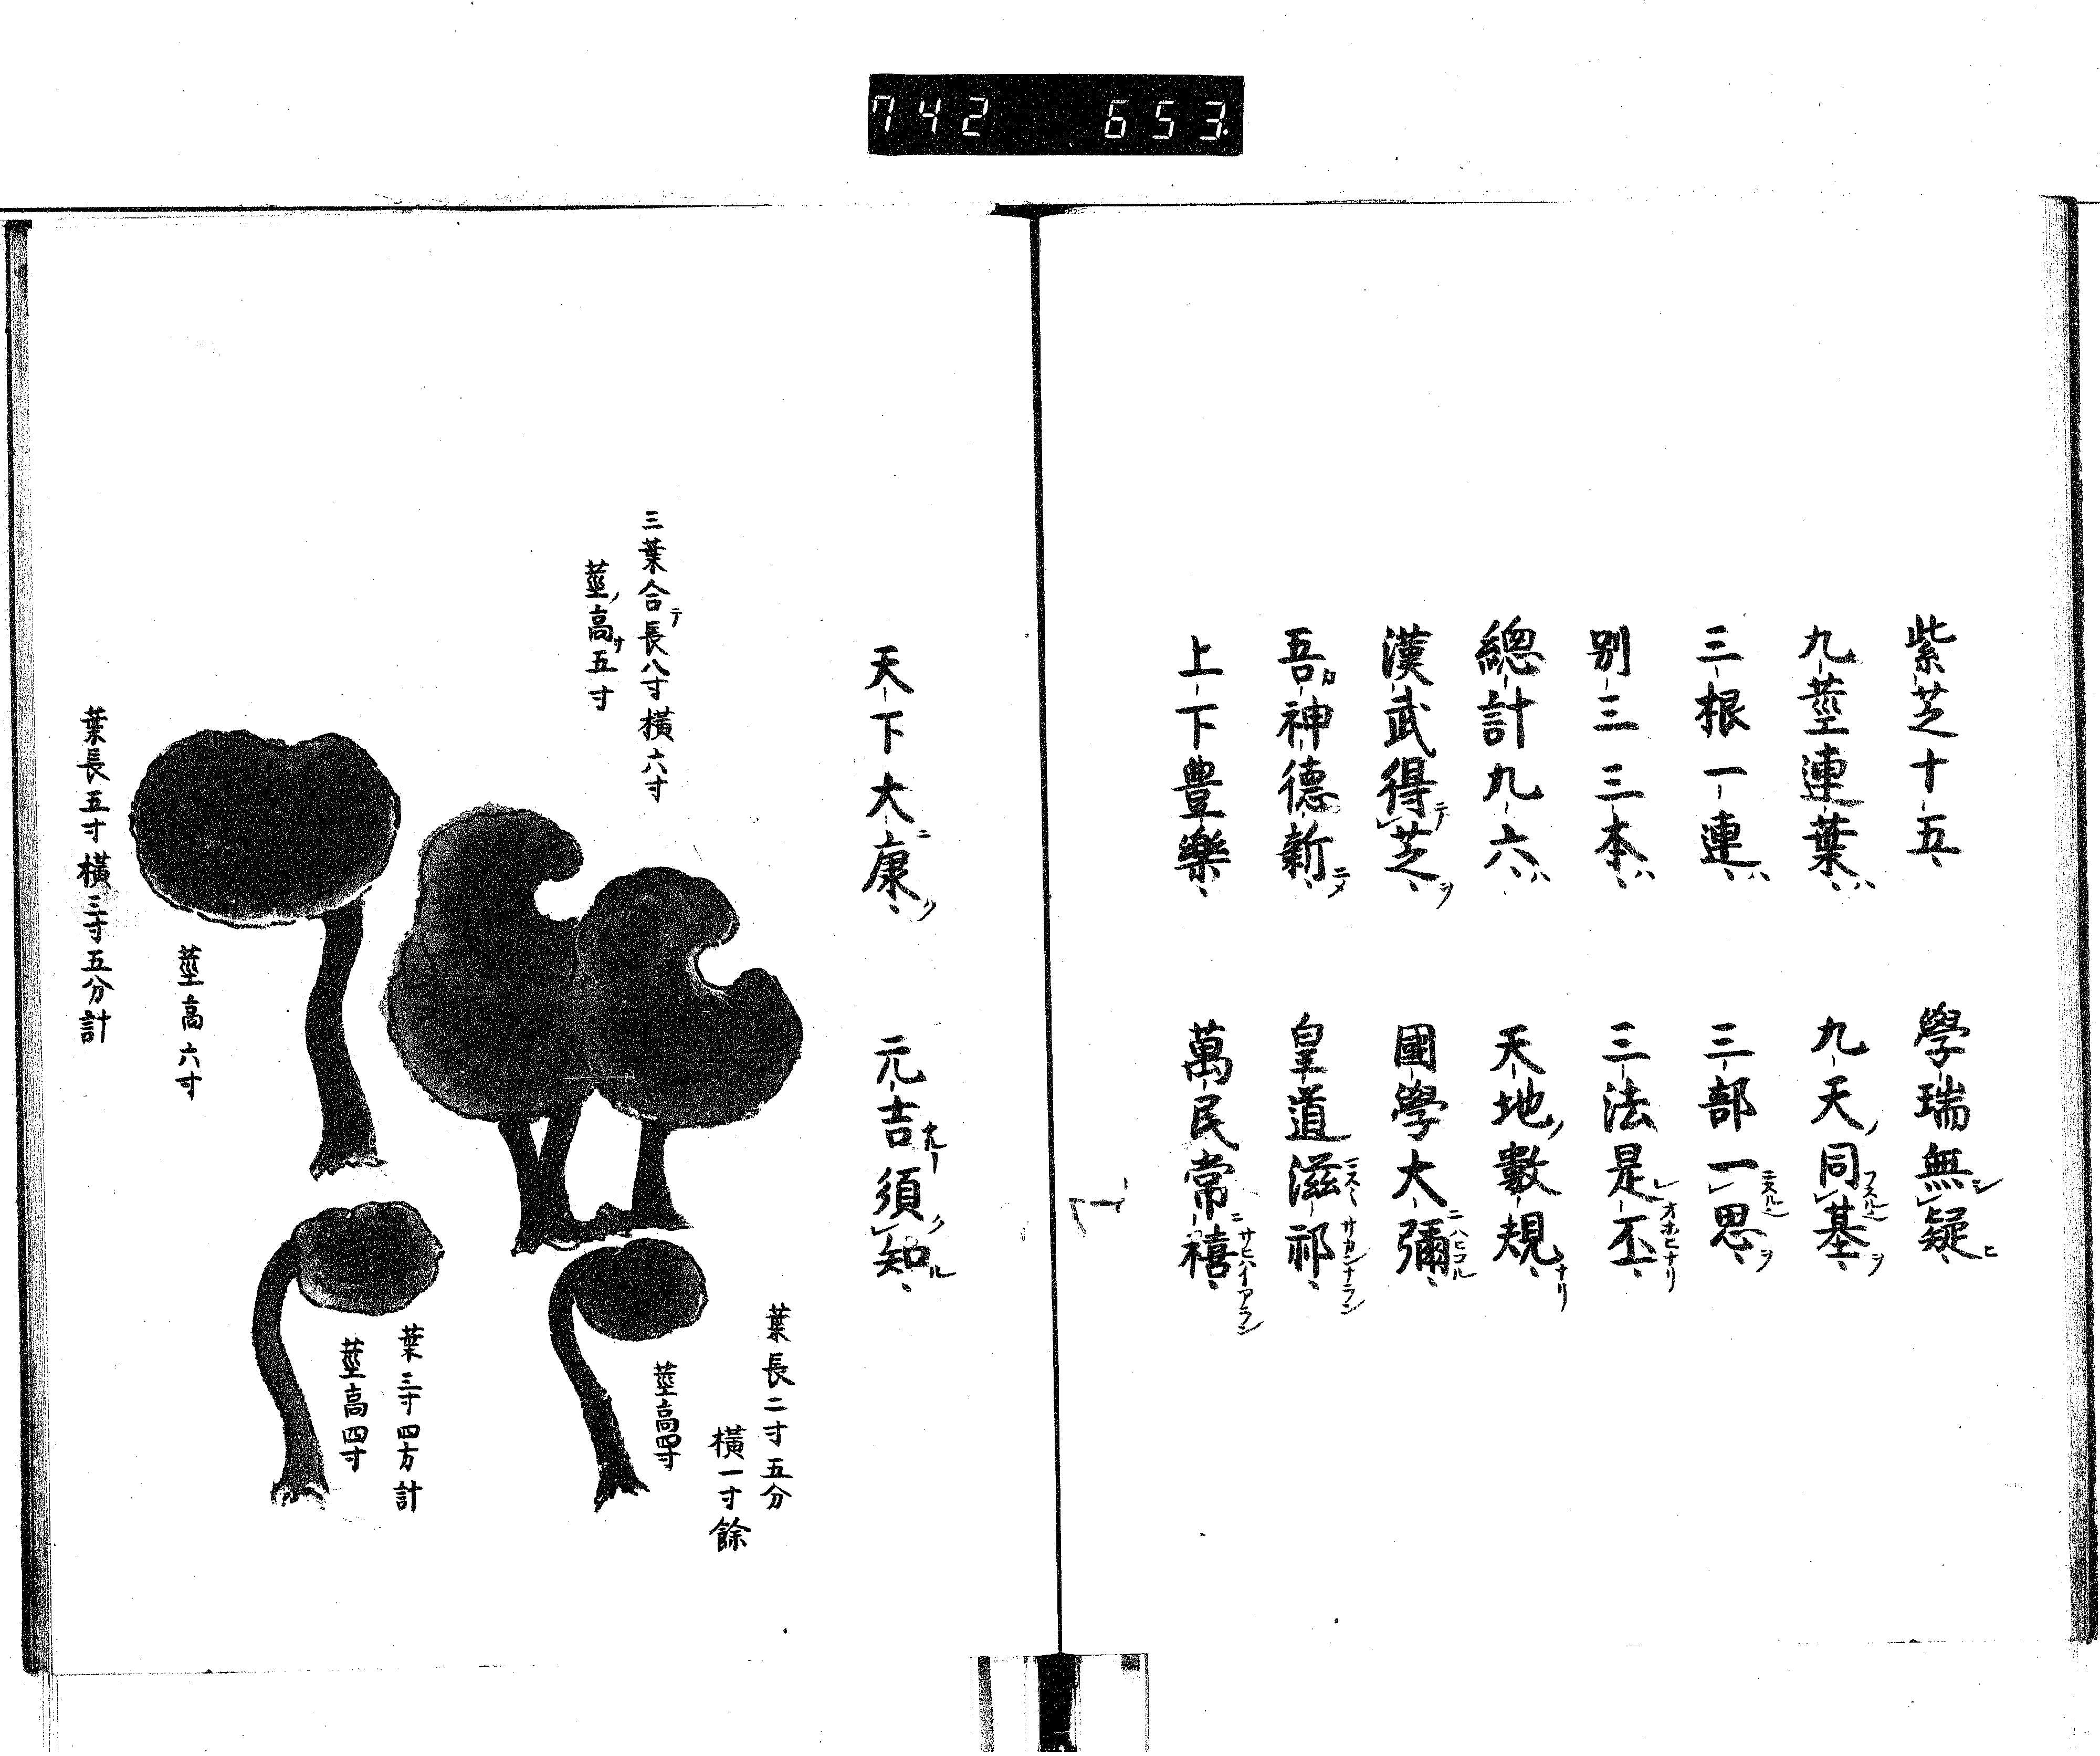 742 653
紫芝十五 學瑞無疑
九莖連葉 九天同基
三根一連 三部一思
別三三本 三法是丕
總計九六 天地數規
漢武得芝 國學大彌
吾神德新 皇道滋祁
上下豊樂 萬民常禧
天下大康 元吉須知
三葉合テ長八寸横六寸
莖ノ高サ五寸
葉長五寸横三寸五分計
莖高六寸
葉長二寸五分
横一寸餘
莖高四寸
葉三寸四方計
莖高四寸